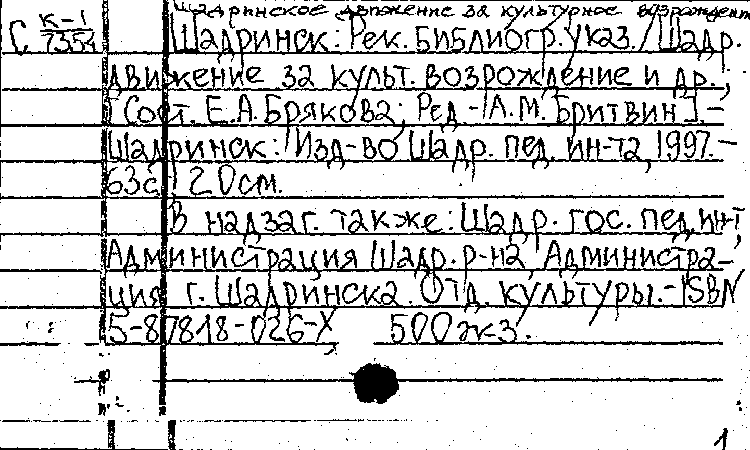 Шадринское движение за культурное возрожден
С К-1/7354 Шадринск: Рек. библиогр. указ. / Шадр.
движение за культ. возрождение и др.;
[Сост. Е.А. Брякова; Ред. - А.М. Бритвин]. -
Шадринск: Изд-во Шадр. пед. ин-та, 1997. -
63с.; 20см.
В надзаг. также: Шадр. гос. пед. ин-т,
Администрация Шадр. р-на, Администра-
ция г. Шадринска. Отд. культуры. - ISBN
5-87818-026-X, 500экз.
1